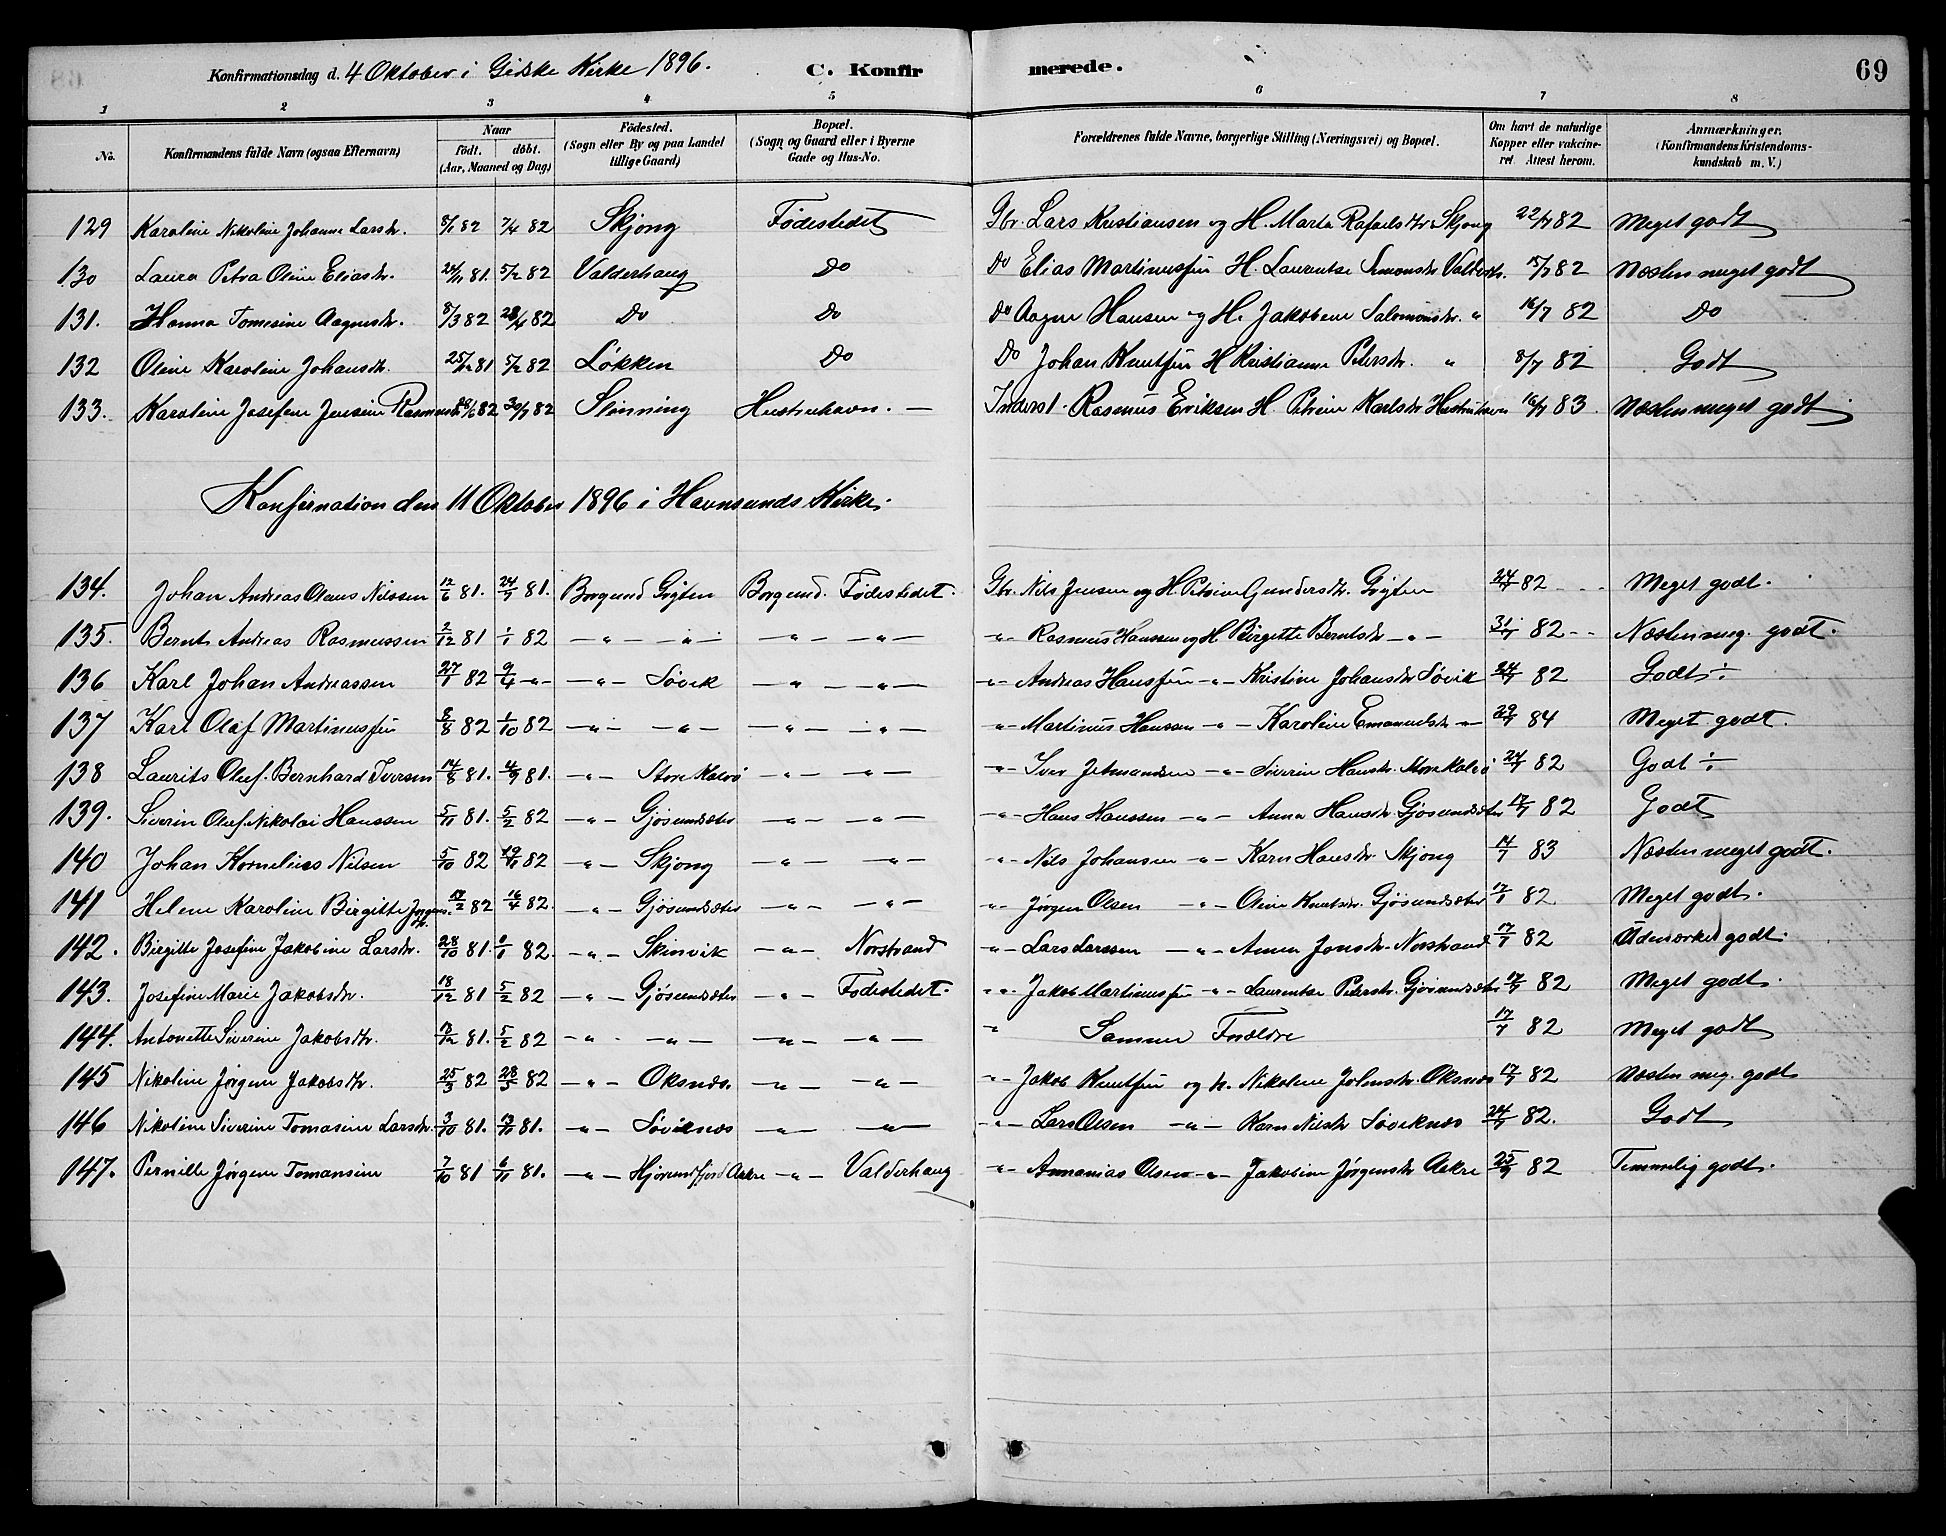 Konfirmationsdag d. 4 Oktober i Giske Kirke 1896. C. Konfirmerede. 69
1 2 3 4 5 6 7 8
No. Konfirmandens fulde Navn (ogsaa Efternavn) Naar födt. döbt. (Aar, Maaned og Dag) Födested. (Sogn eller By og paa Landet tillige Gaard) Bopæl. (Sogn og Gaard eller i Byerne Gade og Hus-No. Forældrenes fulde Navne, borgerlige Stilling (Næringsvei) og Bopæl. Om havt de naturlige Kopper eller vakcineret. Attest herom. Anmærkninger. (Konfirmandens Kristendomskundskab m. V.)
129 Karoline Nikoline Johanne Larsdr. 8/1 82 7/4 82 Skjong Fødestedet Gbr. Lars Kristiansen og H. Marta Rafaelsdr Skjong 22/7 82 Meget godt
130 Laura Petra Oline Eliasdr. 81. 5/2 82 Valderhaug Do Do Elias Martinussen H. Laurentse Simonsdr 15/7 82 Næsten meget godt
131. Hanna Tomesine Aagesdr. 8/3 82 28/4 82 Do Do Do Aage Hansen og H. Jakobine Salomonsdr. " 16/7 82 Do
132 Oline Karoline Johansdr. 25/12 81 5/2 82 Løkken Do Do Johan Knutsen H Kristianne Petersdr. " 8/7 82 Godt
133. Karoline Josefine Jensine Rasmusdr 82 30/7 82 Slinning Hestnehavn. — Inderst. Rasmus Eriksen H. Petrine Karlsdr 83. Næsten meget godt
Konfirmation den 11 Oktober 1896 i Havnsunds Kirke.
134. Johan Andreas Olaus Nilssen 12/6 81. 24/7 81. Borgund Gryten Borgund. Fødestedet. Gbr. Nils Jensen og H. Petrine Gundersdr. Gryten 24/7 82 Meget godt.
135. Bernt Andreas Rasmussen 2/12 81 1/1 82 — " — " — — " — — " — — " — Rasmus Hanssen og H Birgitte Berntsdr — " — 31/7 82 — Næsten meg. godt.
136 Karl Johan Andreassen 27/1 82 9/4 — " — — " — Søvik — " — — " — — " — Andreas Hanssen — " — Kristine Johansdr Søvik 24/7 82 Godt ÷
137 Karl Olaf Martinussen 8/8 82 1/10 82 — " — — " — — " — — " — — " — Martinus Hanssen — " — Karoline Emanuelsdr — " — 29/7 84 Meget godt.
138 Laurits Oluf Bernhard Iversen 14/8 81. 4/9 81. — " — Store Kalvø — " — — " — — " — Iver Jetmundsen — " — Siverine Hansdr. Store Kalvø 24/7 82 Godt ÷
139. Siverin Oluf Nikolai Hanssen 5/11 81. 5/2 82 — " — Gjøsundsæter — " — — " — — " — Hans Hanssen — " — Anna Hansdr Gjøsundsæter 17/7 82 Godt
140 Johan Kornelius Nilsen 5/10 82 82 — " — Skjong — " — — " — — " — Nils Johansen — " — Karn Hansdr Skjong 14/7 83 Næsten meget godt.
141 Helene Karoline Birgitte Jørgensdr. 17/2 82 16/4 82. — " — Gjøsundsæter — " — — " — — " — Jørgen Olsen — " — Oline Knutsdr. Gjøsundsæter 17/7 82 Meget godt.
142. Birgitte Josefine Jakobine Larsdr. 28/10 81. 82. — " — Skinvik — " — Norstrand — " — Lars Larssen — " — Anna Jonsdr. Norstrand 17/7 82 Udmærket godt.
143. Josefine Marie Jakobsdr. 18/12 81 5/2 82 — " — Gjøsundsæter — " — Fødestedet. — " — Jakob Martinussen — " — Laurentse Petersdr. Gjøsundsæter 17/7 82 Meget godt.
144. Antonette Siverine Jakobsdr. 13/12 81. 5/2 82 — " — — " — — " — — " — " Samme Forældre 17/7 82 Meget godt
145 Nikoline Jørgine Jakobsdr. 25/3 82 28/5 82 — " — Oksnæs — " — — " — — " — Jakob Knutsen og h. Nikoline Johnsdr. Oksnæs 17/7 82 Næsten meg. godt
146 Nikoline Siverine Tomasine Larsdr. 3/10 81. 13/11 81. — " — Søviknæs — " — — " — — " — Lars Olsen — " — Karn Nilsdr Søviknæs 24/7 82. Godt
147. Pernille Jørgine Tomansine 7/10 81 6/11 81. — " — Hjørundfjord Aakre — " — Valderhaug — " — Annanias Olsen — " — Jakobine Jørgensdr Aakre 25/9 82 Temmelig godt.